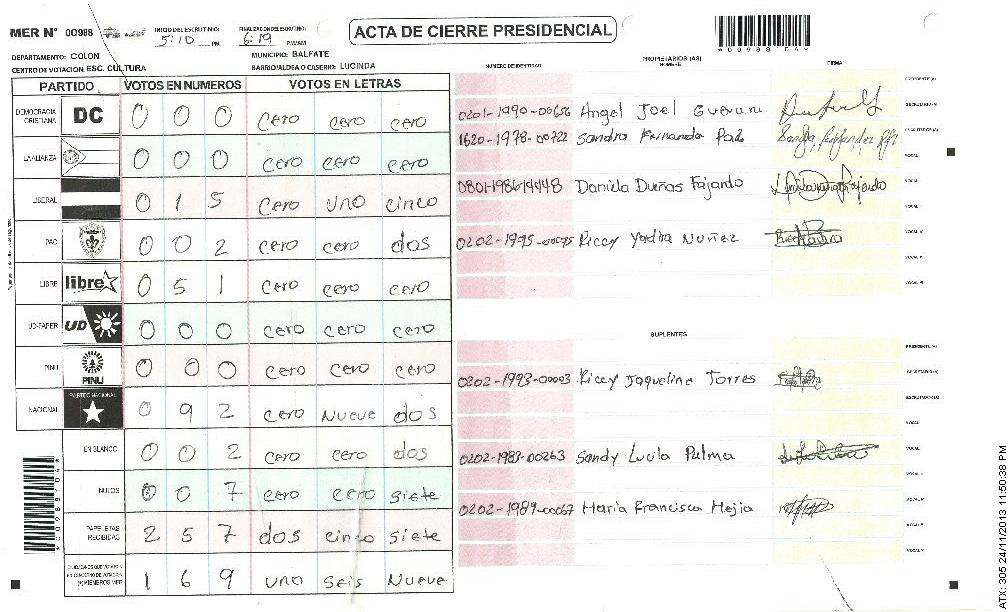 MER N° 00988
INICIO DEL ESCRUTINIO: 5:10 PM
FINALIZACION DEL ESCRUTINIO: 6:19 PM/AM
ACTA DE CIERRE PRESIDENCIAL
DEPARTAMENTO: COLON
MUNICIPIO: BALFATE
CENTRO DE VOTACION: ESC. CULTURA
BARRIO/ALDEA O CASERIO: LUCINDA
PARTIDO VOTOS EN NUMEROS VOTOS EN LETRAS
DEMOCRACIA CRISTIANA DC 0 0 0 cero cero cero
LA ALIANZA 0 0 0 cero cero cero
LIBERAL 0 1 5 cero uno cinco
PAC 0 0 2 cero cero dos
LIBRE libre 0 5 1 cero cero cero
UD-FAPER UD 0 0 0 cero cero cero
PINU PINU 0 0 0 cero cero cero
NACIONAL PARTIDO NACIONAL 0 9 2 cero Nueve dos
EN BLANCO 0 0 2 cero cero dos
NULOS 0 0 7 cero cero siete
PAPELETAS RECIBIDAS 2 5 7 dos cinco siete
1 6 9 uno seis Nueve
PROPIETARIOS (AS)
NUMERO DE IDENTIDAD NOMBRE FIRMA
PRESIDENTE (A)
0201-1990-00656 Angel Joel SECRETARIO (A)
1620-1978-00722 Sandra Fernanda Paz ESCRUTADOR (A)
VOCAL
0801-1986-14448 Daniela Dueñas Fajardo VOCAL
0202-1995-00095 Riccy Yadira Nuñez
SUPLENTES
PRESIDENTE (A)
0202-1993-00003 Riccy Jaqueline Torres SECRETARIO (A)
ESCRUTADOR (A)
VOCAL
0202-1983-00263 Sandy Lucila Palma VOCAL
0202-1989-00067 Maria Francisca Mejia
ATX: 305 24/11/2013 11:50:38 PM